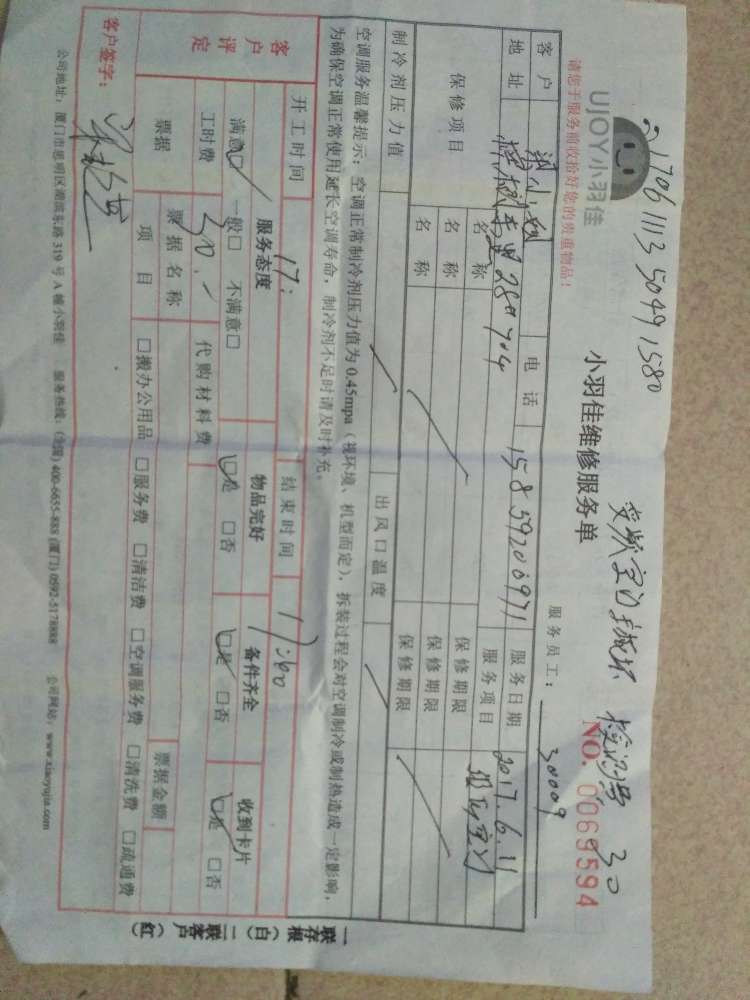 170611135049 1580
变频空调 主板坏 检测费 30
UJOY小羽佳
小羽佳维修服务单
NO. 0069594
请您于服务前收拾好您的贵重物品!
服务员工: 30009
客户 梁小姐 电话 15859200971 服务日期 2017.6.11
地址 704 服务项目
保修项目 名称 保修期限
名称 保修期限
名称 保修期限
制冷剂压力值 出风口温度
空调服务温馨提示:空调正常制冷剂压力值为0.45mpa(视环境、机型而定),拆装过程会对空调制冷或制热造成一定影响,
为确保空调正常使用延长空调寿命,制冷剂不足时请及时补充。
开工时间 17: 结束时间 17:40
客户评定 服务态度 物品完好 备件齐全 收到卡片
满意☑ 一般□ 不满意□ ☑是 □否 ☑是 □否 ☑是 □否
工时费 30. 代购材料费
票据 票据名称 票据金额
项目 □搬办公用品 □服务费 □清洁费 □空调服务费 □清洗费 □疏通费
客户签字:
公司地址:厦门市思明区湖滨东路319号A幢小羽佳 服务热线:(全国)400-6655-888 (厦门)0592-5178888 公司网站:www.xiaoyujia.com
一联存根(白) 二联客户(红)